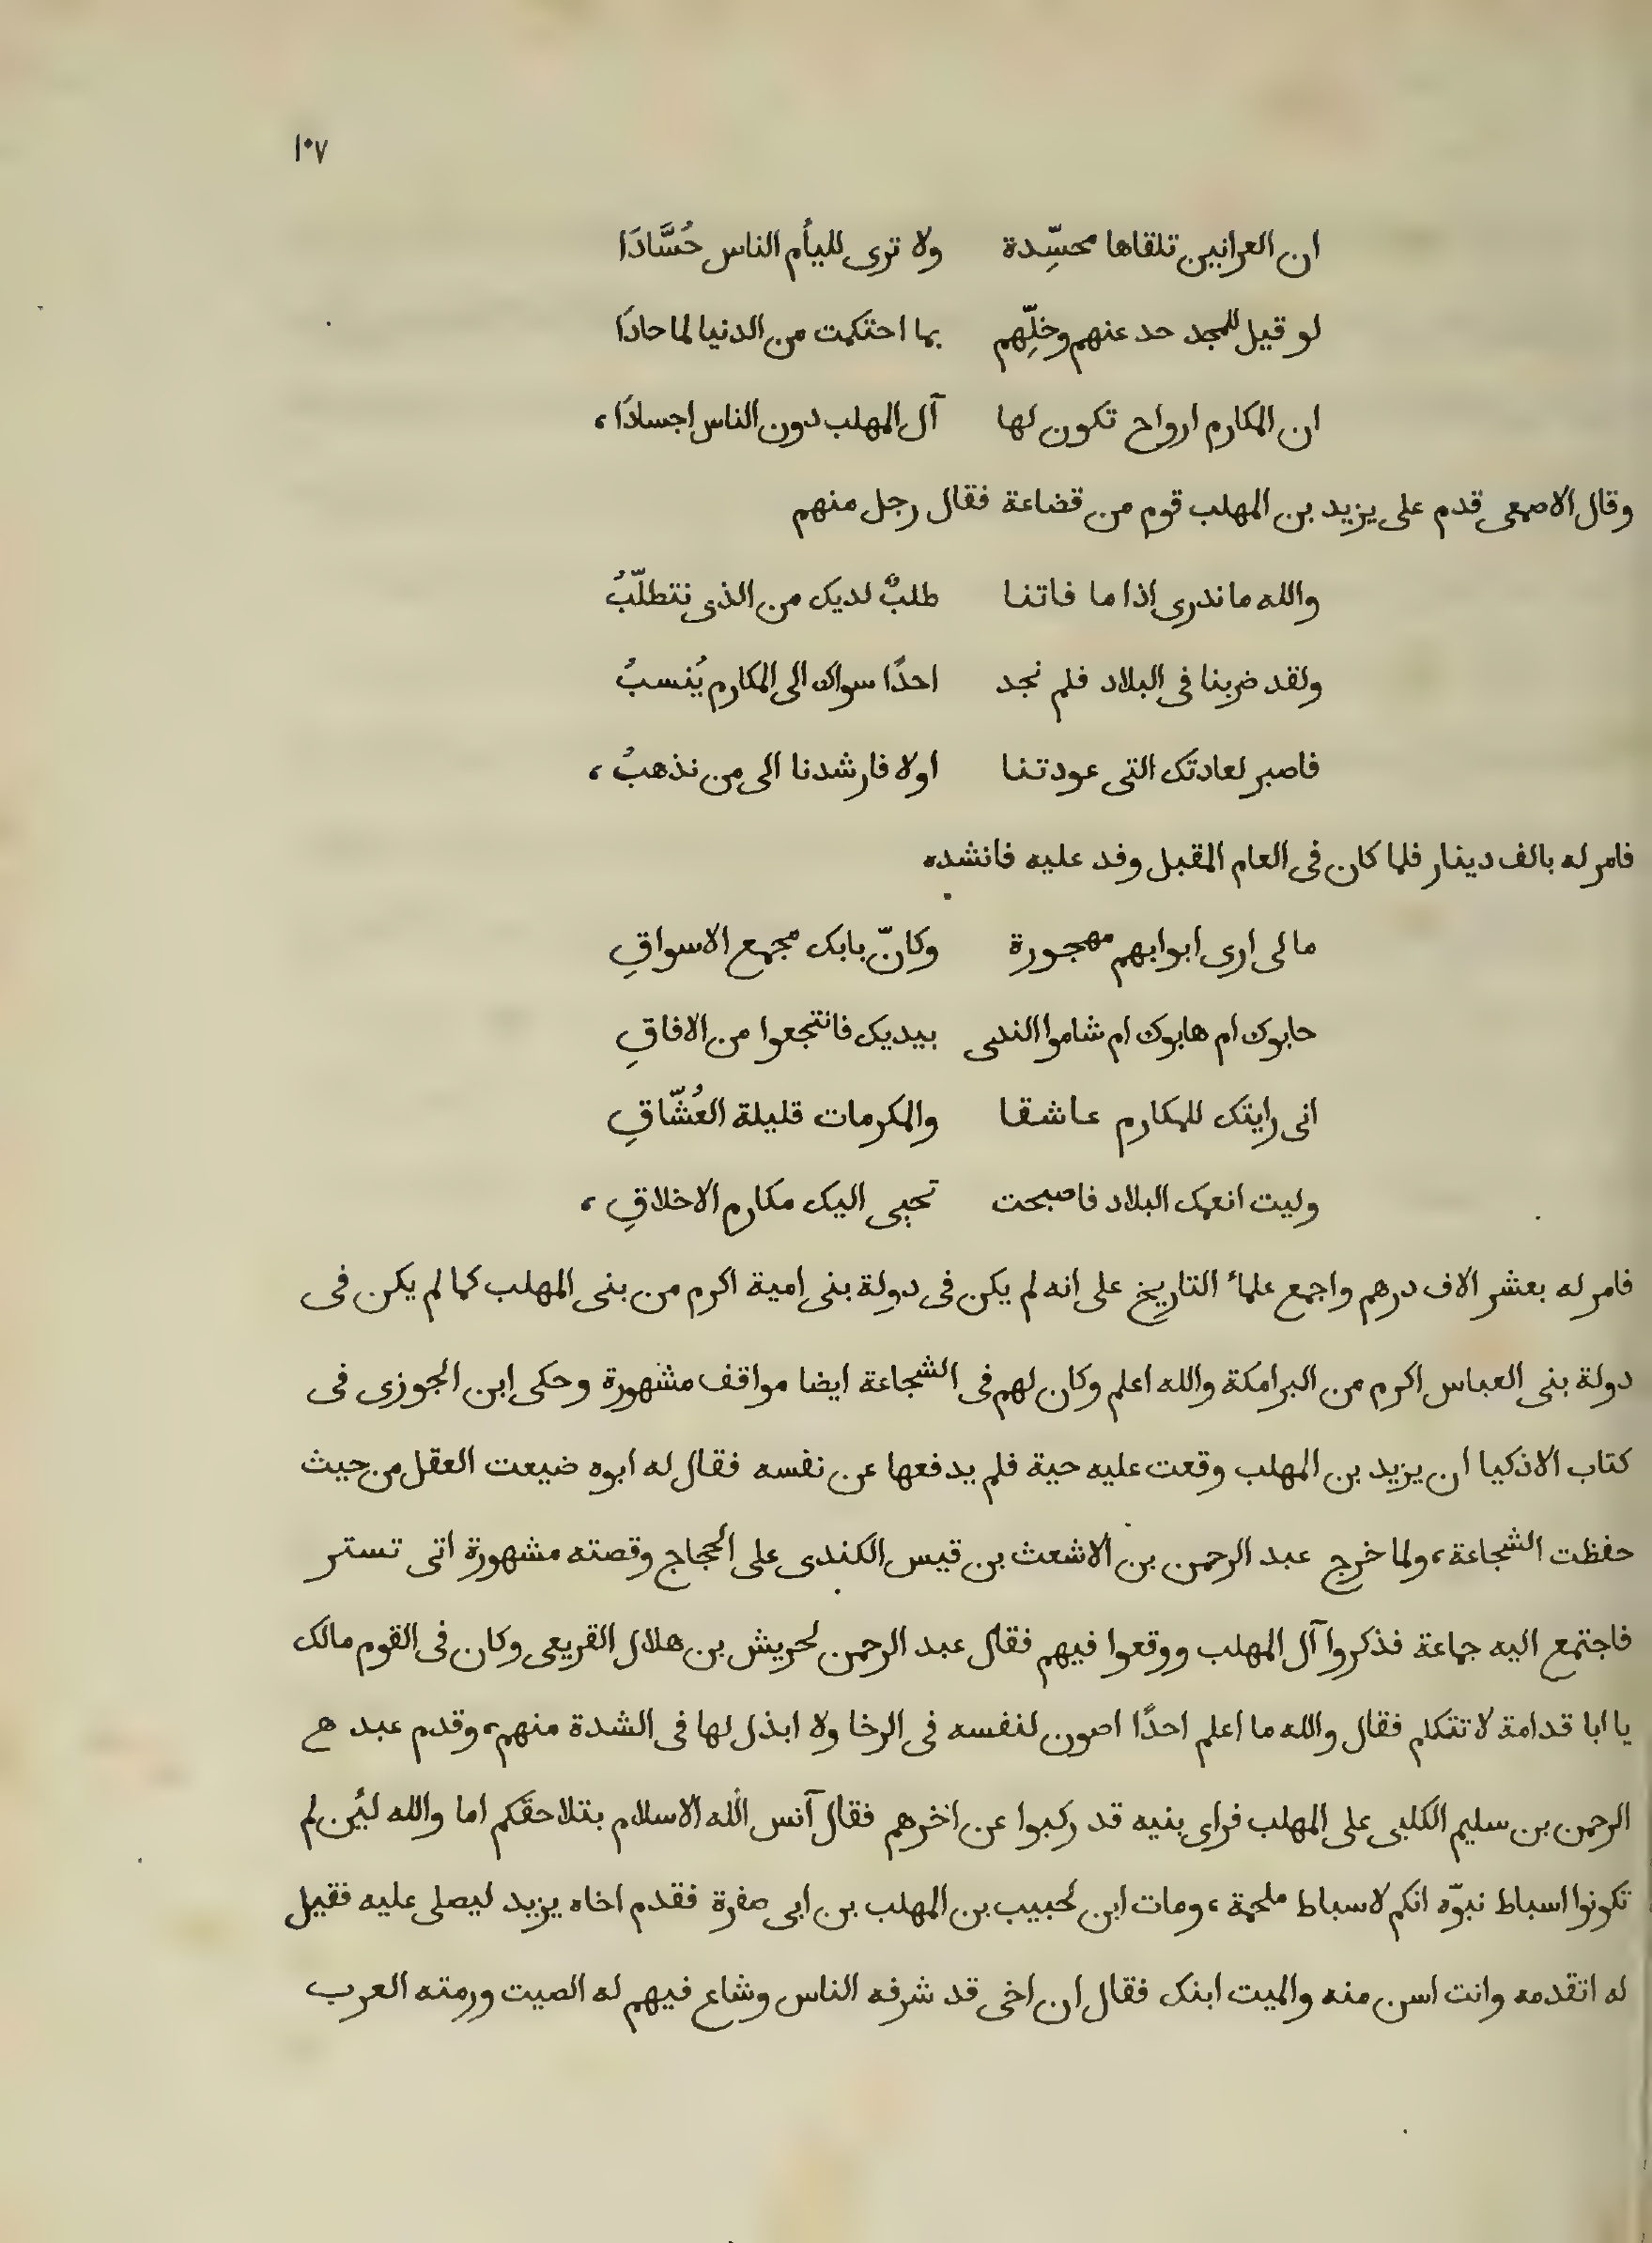 ١٠٧
ان العرانين تلقاها محسِّدة ولا ترى لليأم الناس حُسَّادَا
لو قيل للمجد حد عنهم وخلِّهم بما احتكمت من الدنيا لما حادَا
ان المكارم ارواح تكون لها آل المهلب دون الناس اجسادَا،
وقال الاصمعى قدم على يزيد بن المهلب قوم من قضاعة فقال رجل منهم
والله ما ندرى اذا ما فاتنا طلبٌ لديك من الذى نتطلّبُ
ولقد ضربنا فى البلاد فلم نجد احدًا سواك الى المكارم يُنسبُ
فاصبر لعادتك التى عودتنا اولا فارشدنا الى من نذهبُ،
فامر له بالف دينار فلما كان فى العام المقبل وفد عليه فانشده
ما لى ارى ابوابهم مهجورة وكانّ بابك مجمع الاسواقِ
حابوك ام هابوك ام شاموا الندى بيديك فانتجعوا من الافاقِ
انى رايتك للمكارم عاشقا والمكرمات قليلة العُشّاقِ
وليت انعمك البلاد فاصبحت تحبى اليك مكارم الاخلاقِ،
فامر له بعشر الاف درهم واجمع علماء التاريخ على انه لم يكن فى دولة بنى امية اكرم من بنى المهلب كما لم يكن فى
دولة بنى العباس اكرم من البرامكة والله اعلم وكان لهم فى الشجاعة ايضا مواقف مشهورة وحكى ابن الجوزى فى
كتاب الاذكيا ان يزيد بن المهلب وقعت عليه حية فلم يدفعها عن نفسه فقال له ابوه ضيعت العقل من حيث
حفظت الشجاعة، ولما خرج عبد الرحمن بن الاشعث بن قيس الكندى على الحجاج وقصته مشهورة اتى تستر
فاجتمع اليه جماعة فذكروا آل المهلب ووقعوا فيهم فقال عبد الرحمن لحريش بن هلال القريعى وكان فى القوم مالك
يا ابا قدامة لا تتكلم فقال والله ما اعلم احدًا اصون لنفسه فى الرخا ولا ابذل لها فى الشدة منهم، وقدم عبد هے
الرحمن بن سليم الكلبى على المهلب فراى بنيه قد ركبوا عن اخرهم فقال آنس الله الاسلام بتلاحقكم اما والله لئن لم
تكونوا اسباط نبوّه انكم لاسباط ملحمة، ومات ابن لحبيب بن المهلب بن ابى صفرة فقدم اخاه يزيد ليصلى عليه فقيل
له اتقدمه وانت اسن منه والميت ابنك فقال ان اخى قد شرفه الناس وشاع فيهم له الصيت ورمته العرب